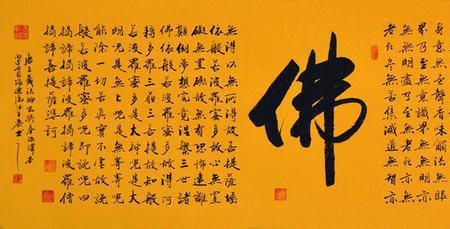 身意無色聲香味觸法無眼
界乃至無意識界無無明亦
無無明盡乃至無老死亦無
老死盡無苦集滅道無智亦
佛
無得以無所得故菩提薩埵
依般若波羅蜜多故心無罣
礙無罣礙故無有恐怖遠離
顛倒夢想究竟涅槃三世諸
佛依般若波羅蜜多故得阿
耨多羅三藐三菩提故知般
若波羅蜜多是大神咒是大
明咒是無上咒是無等等咒
能除一切苦真實不虛故說
般若波羅蜜多咒即說咒曰
揭諦揭諦波羅揭諦波羅僧
揭諦菩提薩婆訶
唐三藏法師玄奘奉詔譯